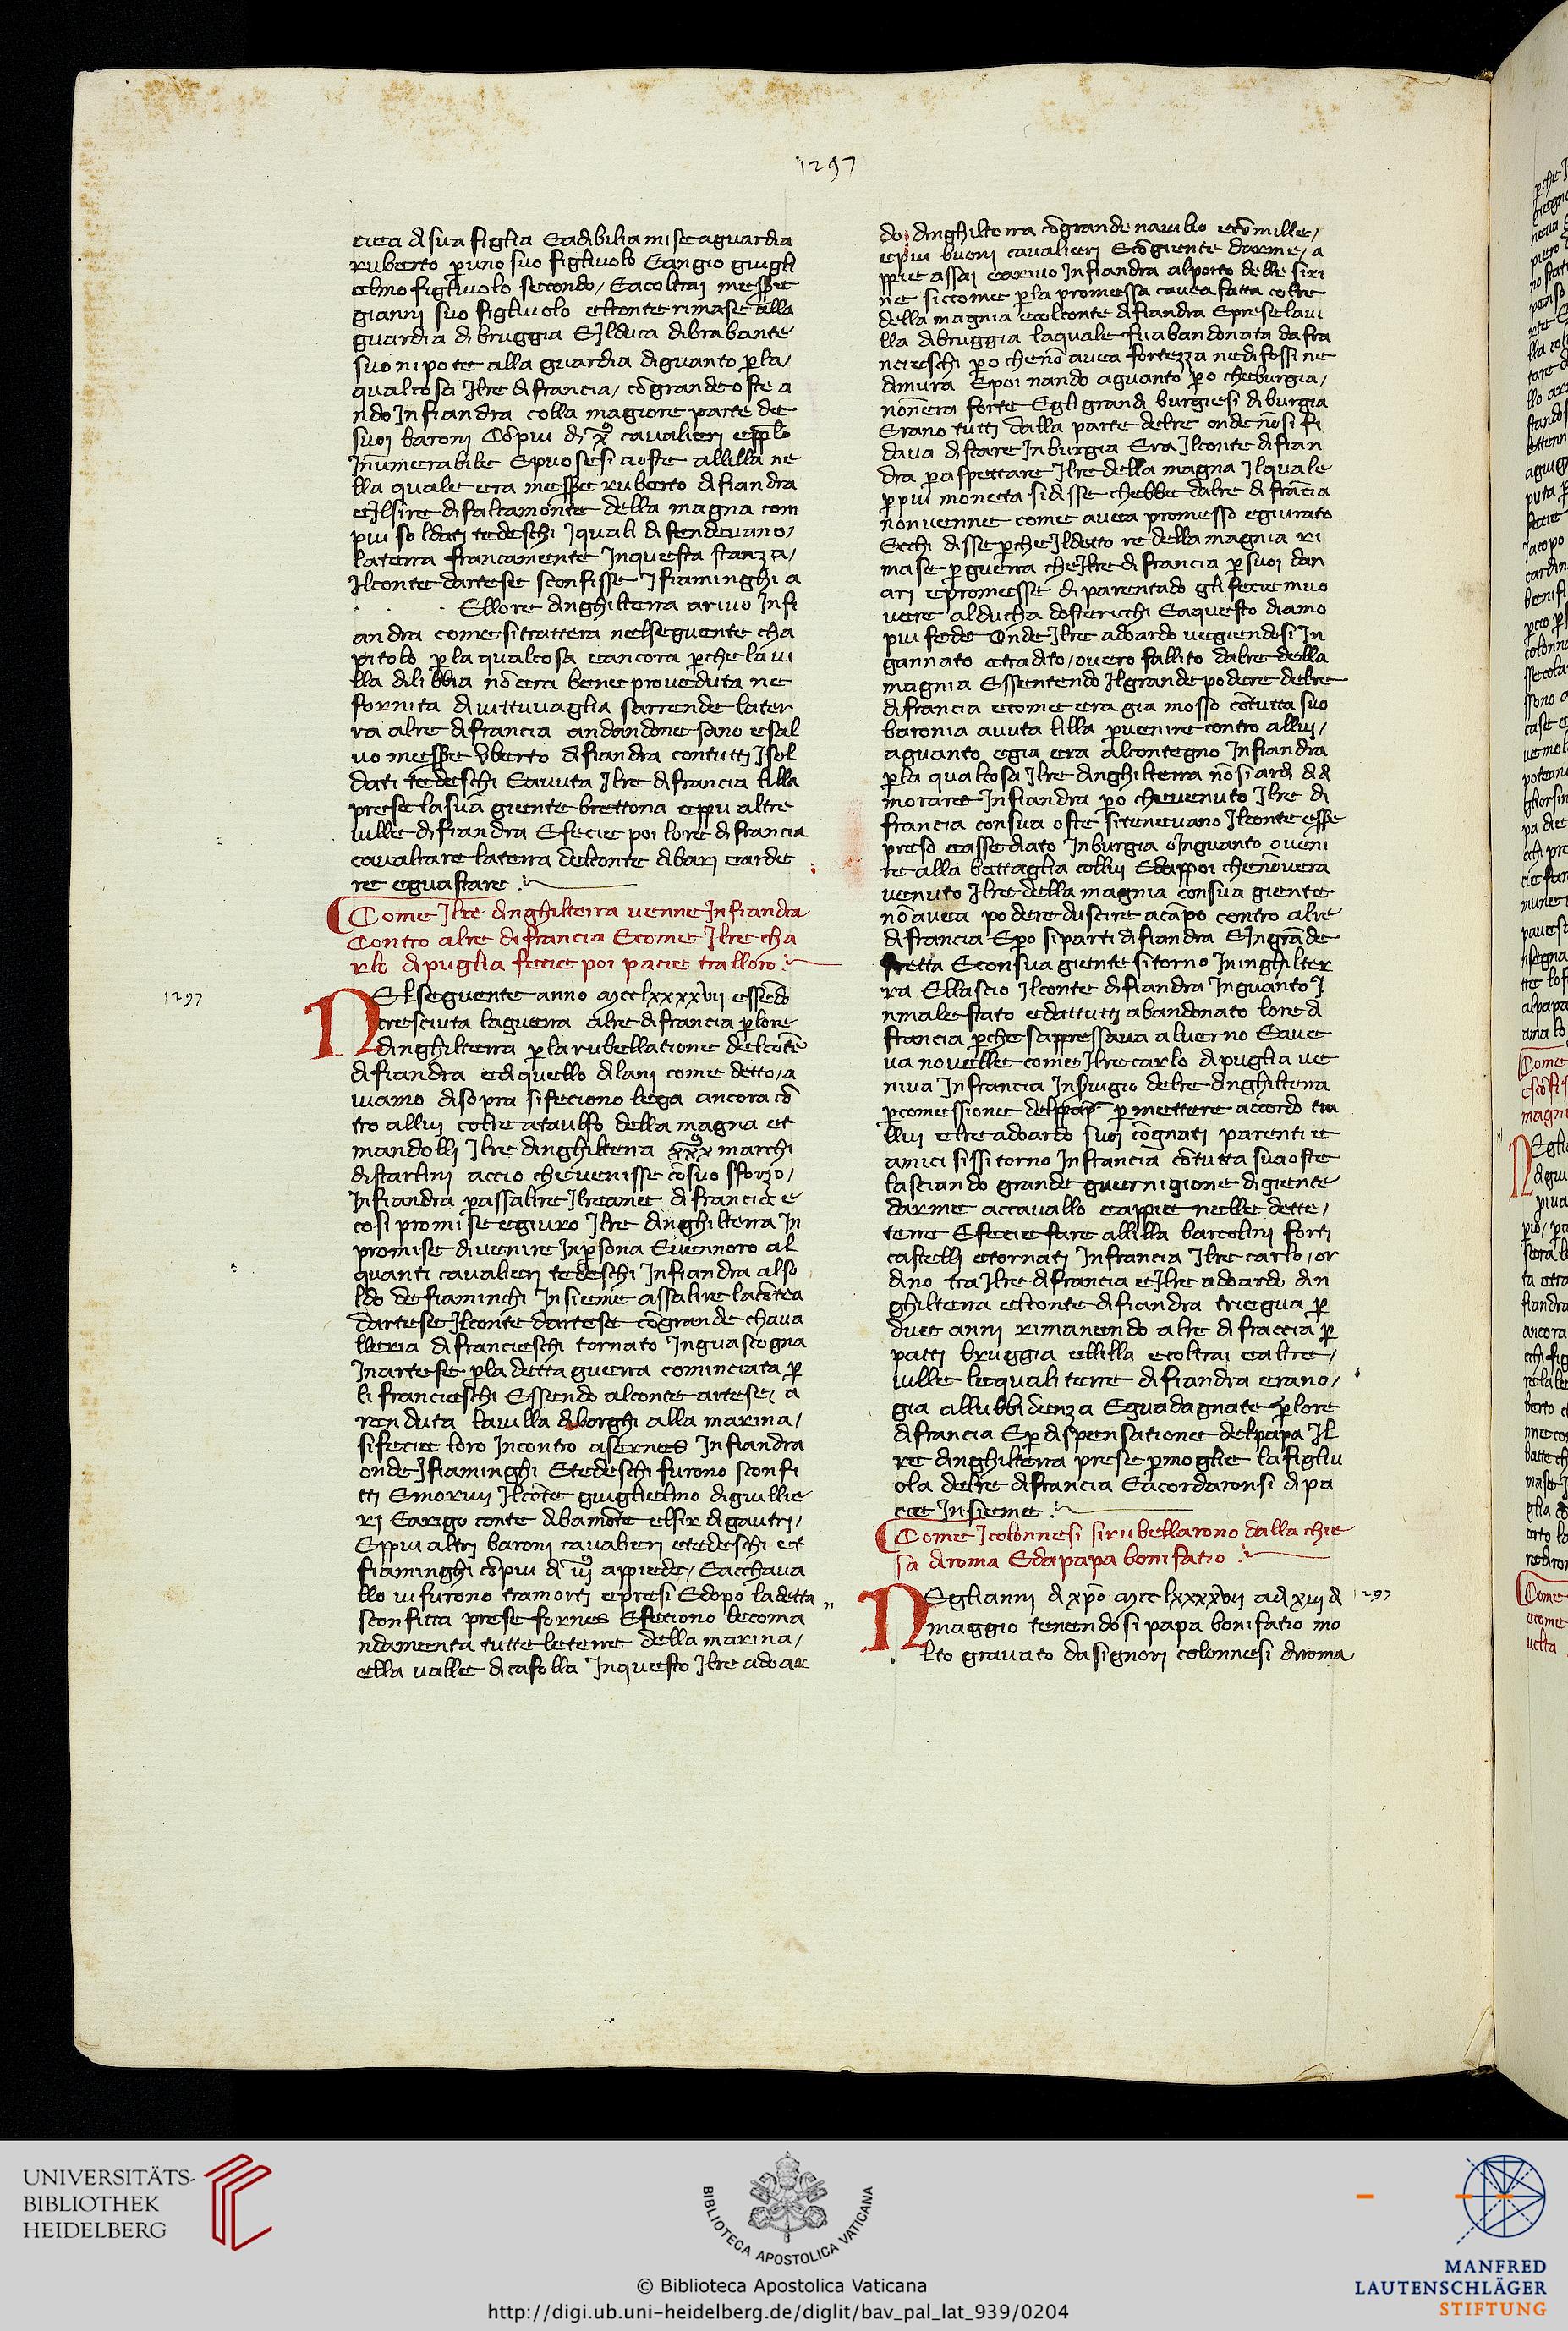 1297
ciea di sua figlia Eadibilia mise aguardia
ruberto p̲ uno suo figliuolo Eangio guigli
elmo figliuolo secondo / Eacoltrai messer
gianni suo figliuolo elconte rimase alla
guardia di bruggia E Jlduca dibrabante
suo nipote alla guardia diguanto p̲ la /
qualcosa Jlre difrancia / cōgrande oste a
ndo Jnfiandra colla magiore parte de
suoi baroni Cōpiu di x̄ cavalieri eppolo
Jnumerabile Epuosesi aoste allilla ne
lla quale era messer ruberto difiandra
eJlsire difalcamonte della magna com
piu soldati tedeschi Jquali distendevano /
laterra francamente Jnquesta stanza /
Jlconte dartese sconfisse Jfiaminghi a
Ellore dinghilterra arivo Jnfi
andra come sitrattera nelseguente cha
pitolo p̲ la qualcosa eancora p̲che lavi
lla dilibbia nō era bene proveduta ne
fornita divittuvaglia sarrende later
ra alre difrancia andandone sano esal
vo messer Vberto difiandra contutti Jsol
dati tedeschi Eavuta Jlre difrancia lilla
prese lasua giente brettona eppiu altre
ville difiandra Efecie poi lore difrancia
cavalcare laterra delconte dibari earde
re eguastare
Come Jlre dinghilterra venne Jnfiandra
Contro alre difrancia Ecome Jlre cha
rlo dipuglia fecie poi pacie tralloro
1297
NElseguente anno mcclxxxxvii essēdo
cresciuta laguerra alre difrancia p̲ lore
dinghilterra p̲ la rubellatione delcōte
difiandra ediquello dilani come detto / a
viamo disopra sifeciono lega ancora cō
tro allui colre ataulfo della magna et
mandolli Jlre dinghilterra xxx marchi
distarlini accio chevenisse cōsuo sforzo /
Jnfiandra p̲assalire Jlreame difrancia e
cosi promise egiuro Jlre dinghilterra Jn
promise divenire Jnp̲sona Evennoro al
quanti cavalieri tedeschi Jnfiandra also
ldo defiaminchi Jnsieme assalire lacōtea
dartese Jlconte dartese cōgrande chava
lleria difrancieschi tornato Jnguascogna
Jnartese p̲ la detta guerra cominciata p̲
li francieschi Essendo alconte artese / a
renduta lavilla diborghi alla marina /
sifecie loro Jncontro afornes Jnfiandra
onde Jfiaminghi Etedeschi furono sconfi
tti Emorivi Jlcōte guiglielmo digiullie
ri Earigo conte dibamōte elsir digautri /
Eppiu altri baroni cavalieri etedeschi et
fiaminghi cōpiu di iij appiede / Eacchava
llo vifurono tramorti epresi Edopo ladetta
sconfitta prese fornes Efeciono lecoma
ndamenta tutte leterre della marina /
ella valle dicasolla Jnquesto Jlre adoar
do dinghilterra cōgrande navilio ecōmille /
epiu buoni cavalieri Ecōgiente darme / a
ppie assai earivo Jnfiandra alporto delle siri
ne siccome p̲ la promessa cavea fatta colre
della magnia ecolconte difiandra Eprese lavi
lla dibruggia laquale fu abandonata dafra
ncieschi p̲o chenō avea fortezza nedifossi ne
dimura Epoi nando aguanto p̲o cheburgia /
nonnera forte Egli grandi burgiesi diburgia
Erano tutti dalla parte delre onde nōsi fi
dava distare Jnburgia Era Jlconte difian
dra p̲ aspettare Jlre della magna Jlquale
p̲ piu moneta sidisse chebbe dalre difrancia
nonvenne come avea promesso egiurato
Ecchi disse p̲che Jldetto re della magnia ri
mase p̲ guerra cheJlre difrancia p̲ suoi dan
ari epromesse diparentado gli fecie muo
vere alducha dostericchi Eaquesto diamo
piu fede Onde Jlre adoardo vegiendosi Jn
gannato etradito / overo fallito dalre della
magnia Essentendo Jlgrande podere delre
difrancia ecome era gia mosso cōtutta suo
baronia avuta lilla p̲ venire contro allui /
aguanto egia era alcontegno Jnfiandra
p̲ la qualcosa Jlre dinghilterra nōsi ardi di di
morare Jnfiandra p̲o chevenuto Jlre di
francia consua oste sitenevano Jlconte esse
preso eassediato Jnburgia oJnguanto oveni
re alla battaglia collui Edappoi chenōvera
venuto Jlre della magnia consua giente
nō avea podere duscire acāpo contro alre
difrancia Ep̲o siparti difiandra EJngrāde
fretta Econsua giente sitorno Jninghilter
ra Ellascio Jlconte difiandra Jnguanto J
nmale stato edattutti abandonato lore di
francia p̲che sappressava alverno Eave
va novelle come Jlre carlo dipuglia ve
niva Jnfrancia Jnservigio delre dinghilterra
p̲comessione delpapa p̲ mettere accordo tra
llui elre adoardo suoi cōgnati parenti e
amici sissi torno Jnfrancia cōtutta sua oste
lasciando grande guernigione digiente
darme accavallo eappie nelle dette /
terre Efecie fare allilla barcolini forti
castelli etornati Jnfrancia Jlre carlo / or
dino tra Jlre difrancia eJlre adoardo din
ghilterra elconte difiandra triegua p̲
due anni rimanendo alre difraccia p̲
patti bruggia ellilla ecoltrai ealtre /
ville lequali terre difiandra erano /
gia allubbidenza Eguadagnate p̲ lore
difrancia Ep̲ dispensatione delpapa Jl
re dinghilterra prese p̲moglie lafigliu
ola delre difrancia Eacordaronsi dipa
cie Jnsieme
Come Jcolonnesi sirubellarono dalla chie
sa diroma Edapapa bonifatio
NEglianni di xp̄o mcclxxxxvii adi xiii di
1297
maggio tenendosi papa bonifatio mo
lto gravato dasignori colonnesi diroma
UNIVERSITÄTS-
BIBLIOTHEK
HEIDELBERG
BIBLIOTECA APOSTOLICA VATICANA
© Biblioteca Apostolica Vaticana
http://digi.ub.uni-heidelberg.de/diglit/bav_pal_lat_939/0204
MANFRED
LAUTENSCHLÄGER
STIFTUNG